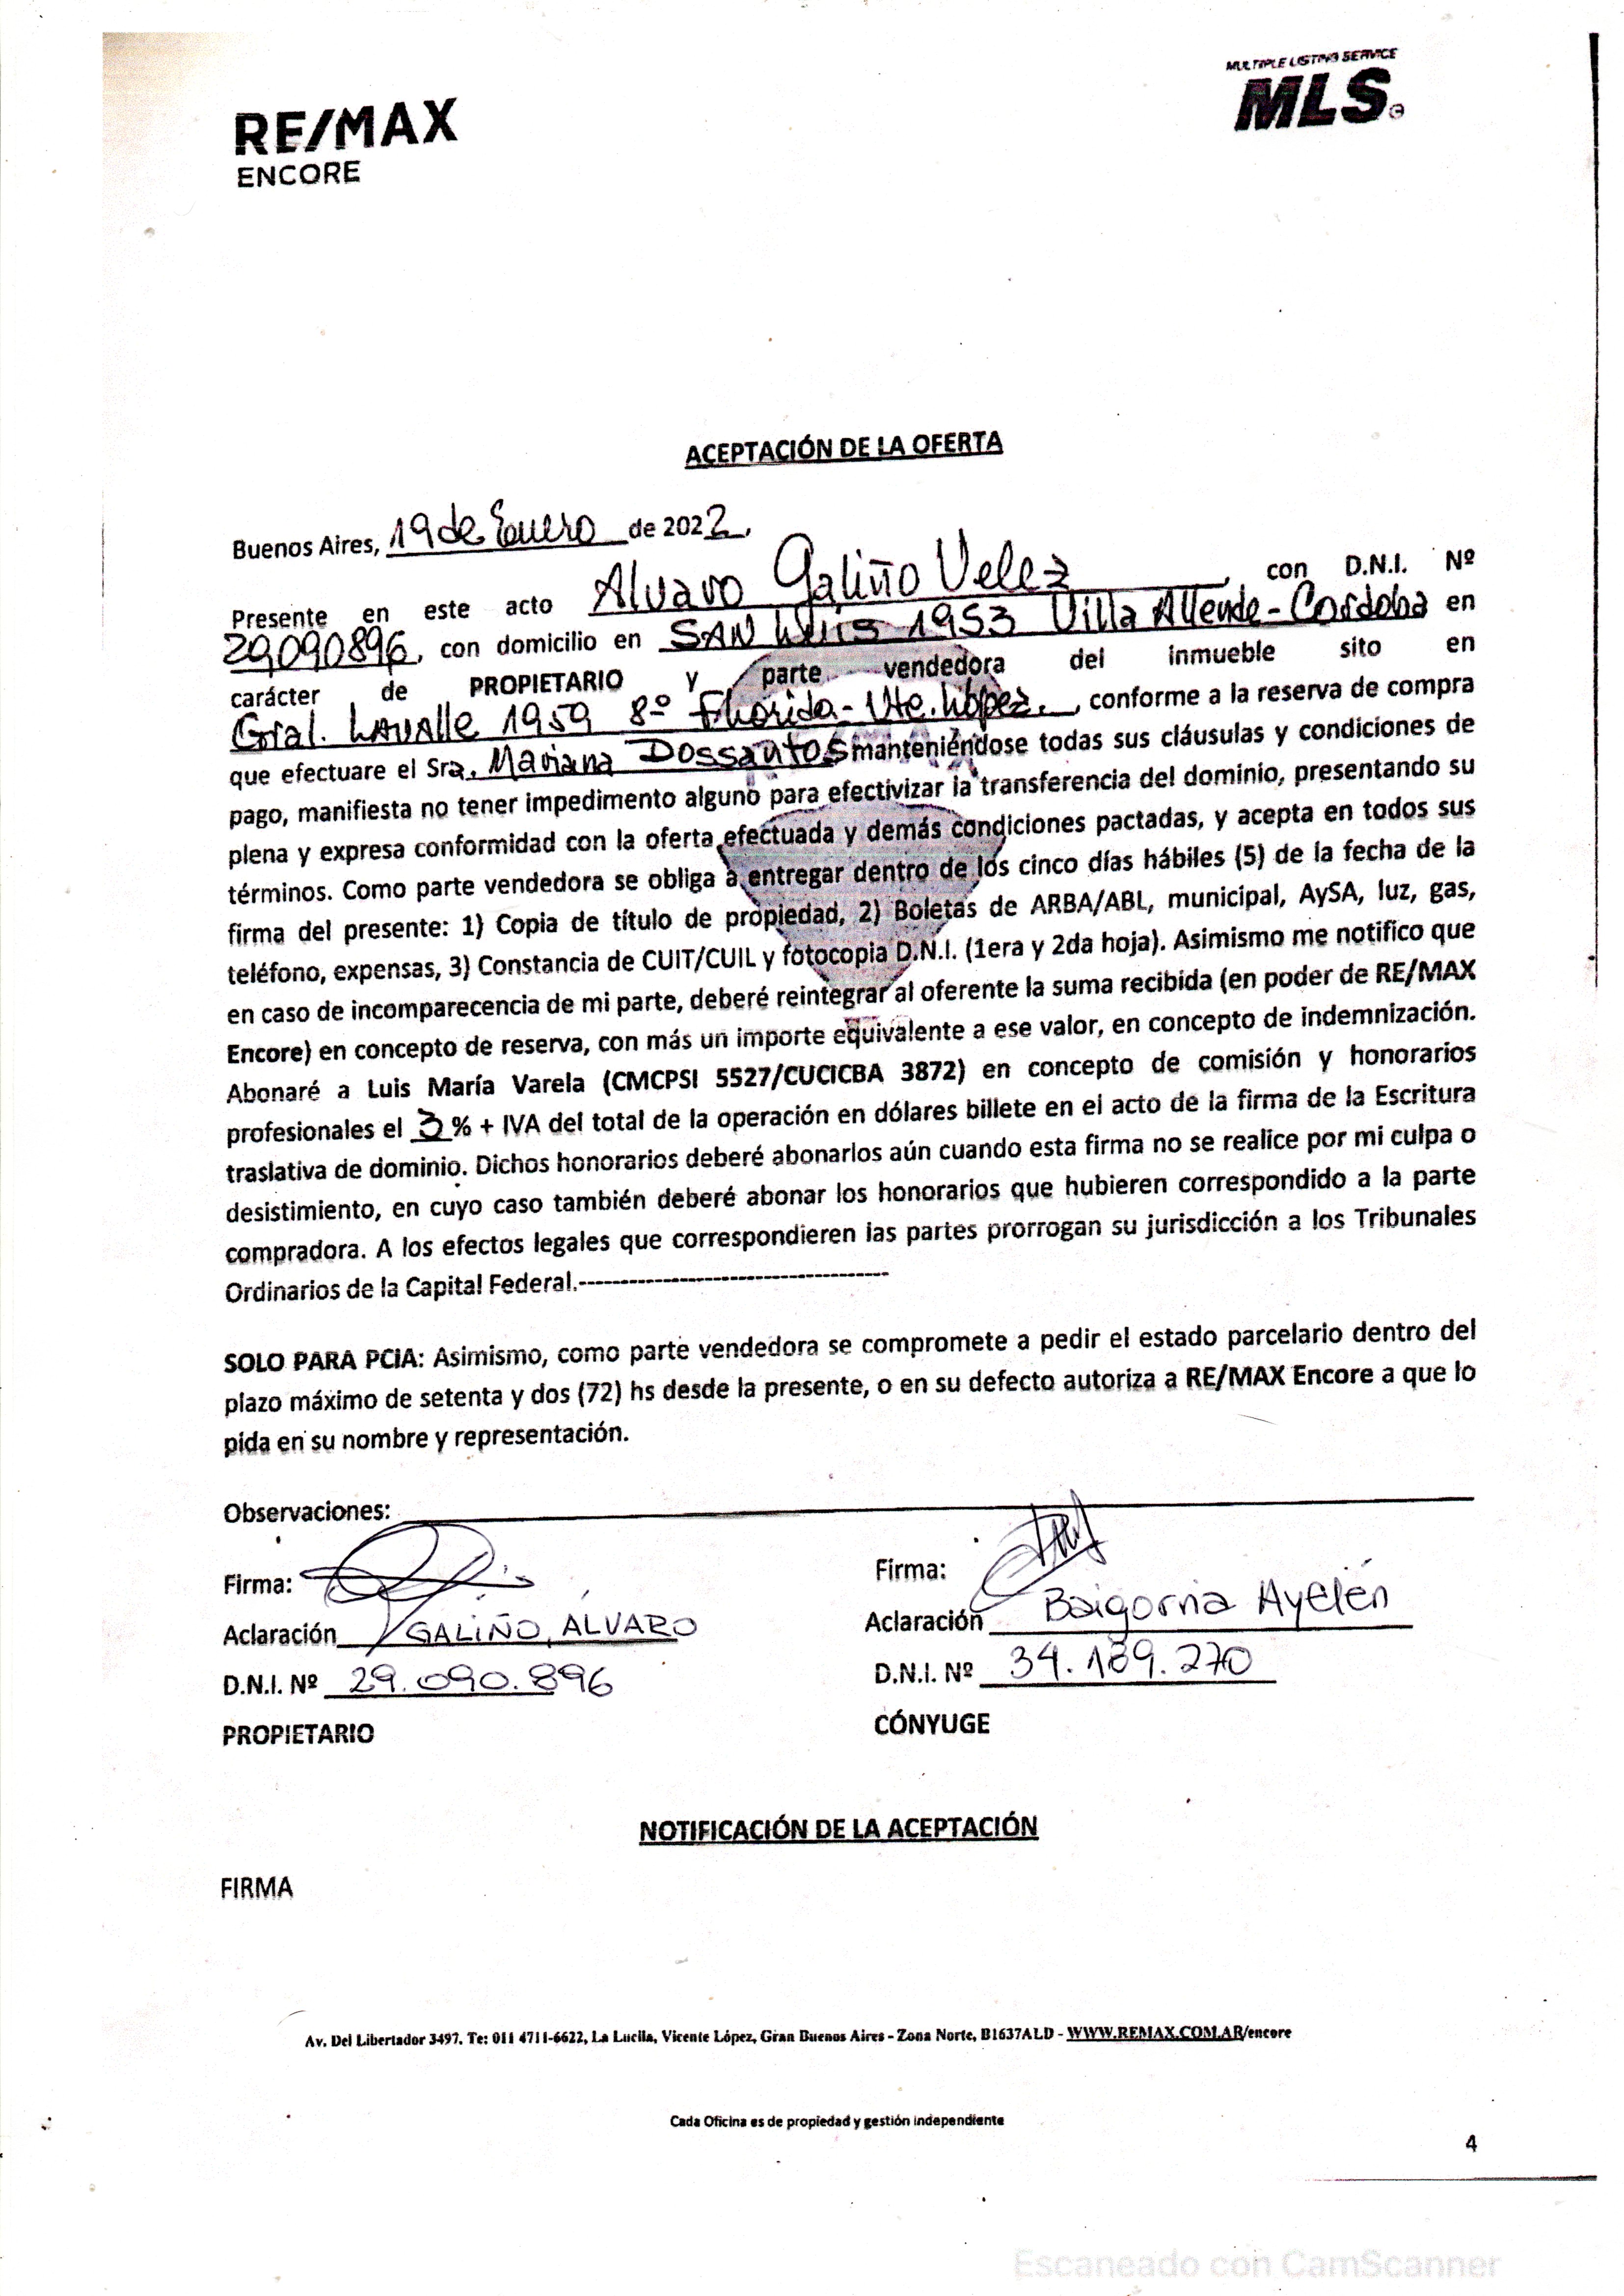 RE/MAX
ENCORE
MULTIPLE LISTING SERVICE
MLS
ACEPTACIÓN DE LA OFERTA
Buenos Aires, 19 de Enero de 2022.
Presente en este acto Alvaro Galiño Velez, con D.N.I. Nº
29090896, con domicilio en SAN LUIS 1953 Villa Allende - Cordoba en
carácter de PROPIETARIO y parte vendedora del inmueble sito en
Gral. LAVAlle 1959 8º Florida - Vte. López., conforme a la reserva de compra
que efectuare el Sra. Mariana Dossantos manteniéndose todas sus cláusulas y condiciones de
pago, manifiesta no tener impedimento alguno para efectivizar la transferencia del dominio, presentando su
plena y expresa conformidad con la oferta efectuada y demás condiciones pactadas, y acepta en todos sus
términos. Como parte vendedora se obliga a entregar dentro de los cinco días hábiles (5) de la fecha de la
firma del presente: 1) Copia de título de propiedad, 2) Boletas de ARBA/ABL, municipal, AySA, luz, gas,
teléfono, expensas, 3) Constancia de CUIT/CUIL y fotocopia D.N.I. (1era y 2da hoja). Asimismo me notifico que
en caso de incomparecencia de mi parte, deberé reintegrar al oferente la suma recibida (en poder de RE/MAX
Encore) en concepto de reserva, con más un importe equivalente a ese valor, en concepto de indemnización.
Abonaré a Luis María Varela (CMCPSI 5527/CUCICBA 3872) en concepto de comisión y honorarios
profesionales el 3 % + IVA del total de la operación en dólares billete en el acto de la firma de la Escritura
traslativa de dominio. Dichos honorarios deberé abonarlos aún cuando esta firma no se realice por mi culpa o
desistimiento, en cuyo caso también deberé abonar los honorarios que hubieren correspondido a la parte
compradora. A los efectos legales que correspondieren las partes prorrogan su jurisdicción a los Tribunales
Ordinarios de la Capital Federal.-------------------------------------
SOLO PARA PCIA: Asimismo, como parte vendedora se compromete a pedir el estado parcelario dentro del
plazo máximo de setenta y dos (72) hs desde la presente, o en su defecto autoriza a RE/MAX Encore a que lo
pida en su nombre y representación.
Observaciones:
Firma: Firma:
Aclaración GALIÑO, ALVARO Aclaración Baigorria Ayelén
D.N.I. Nº 29.090.896 D.N.I. Nº 34.189.270
PROPIETARIO CÓNYUGE
NOTIFICACIÓN DE LA ACEPTACIÓN
FIRMA
Av. Del Libertador 3497. Te: 011 4711-6622, La Lucila, Vicente López, Gran Buenos Aires - Zona Norte, B1637ALD - WWW.REMAX.COM.AR/encore
Cada Oficina es de propiedad y gestión independiente
4
Escaneado con CamScanner